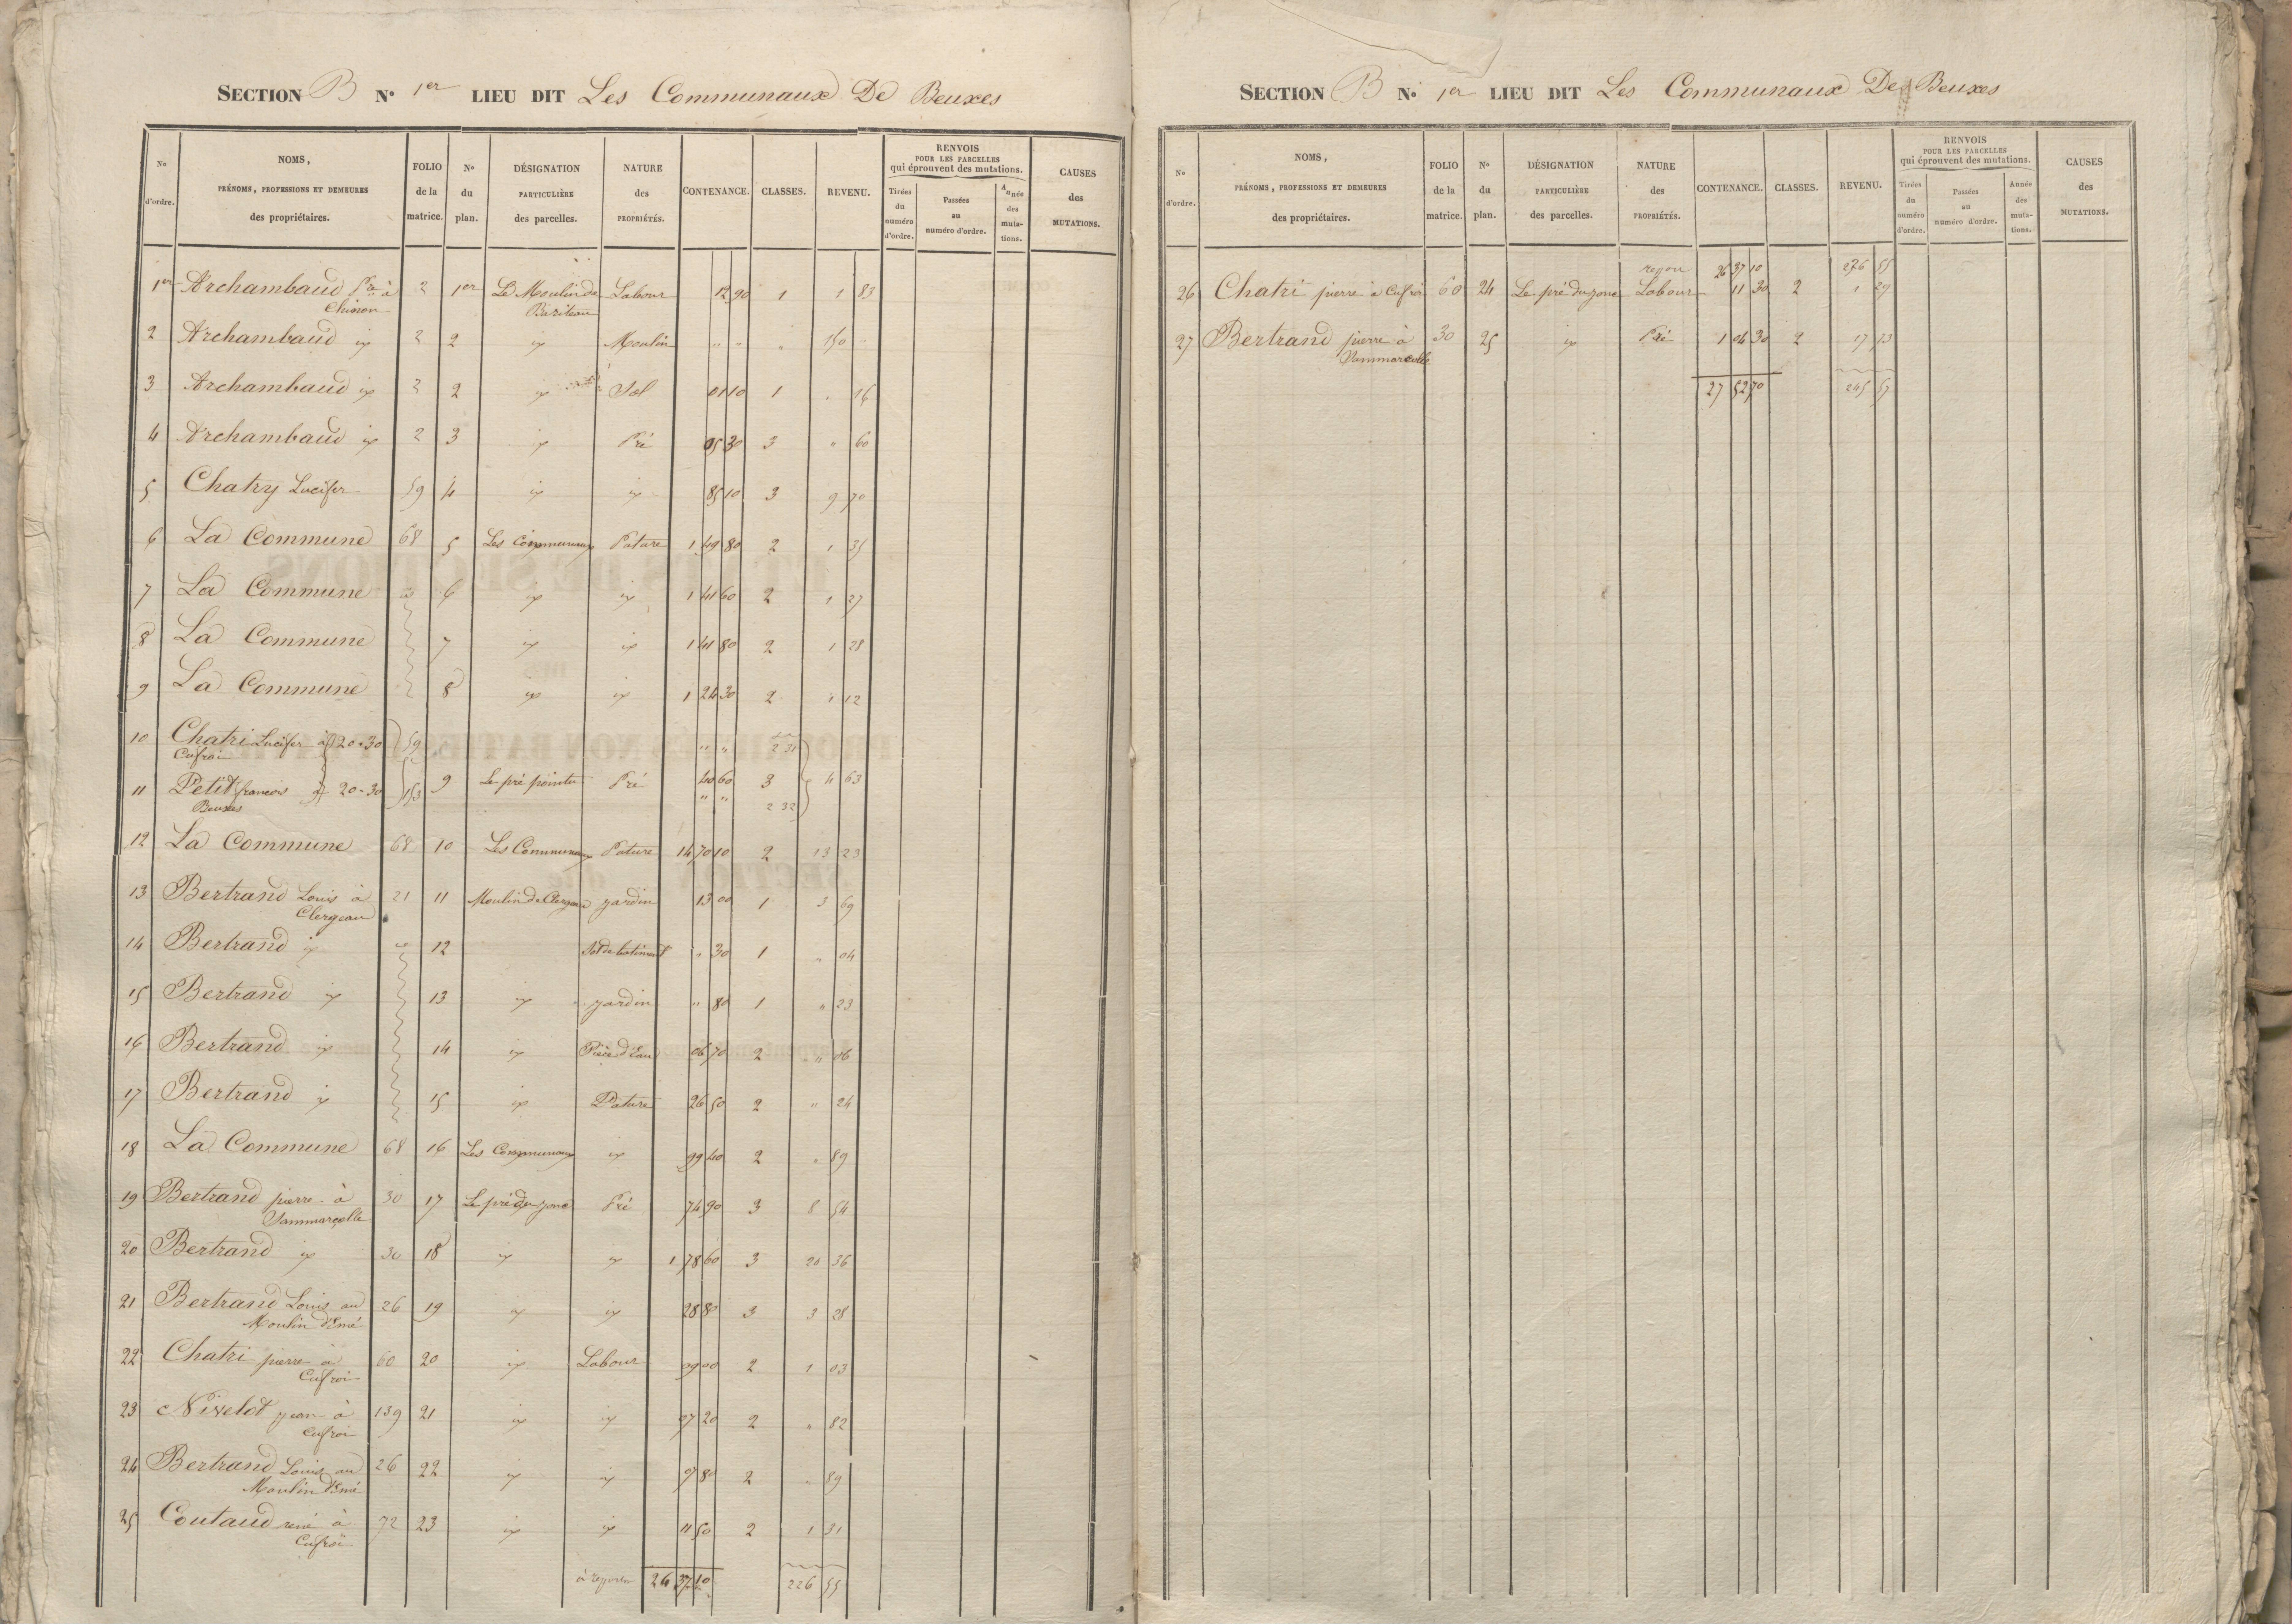 SECTION B N° 1er LIEU DIT Les Communaux De Beuxes
N° d'ordre. NOMS, PRÉNOMS, PROFESSIONS ET DEMEURES des propriétaires. FOLIO de la matrice. N° du plan. DÉSIGNATION PARTICULIÈRE des parcelles. NATURE des PROPRIÉTÉS. CONTENANCE. CLASSES. REVENU. RENVOIS POUR LES PARCELLES qui éprouvent des mutations. Tirées du numéro d'ordre. Passées au numéro d'ordre. Année des mutations. CAUSES des MUTATIONS.
1er Archambaud à 2 1er Le Moulin de Labour 12 90 1 1 83
Chinon
2 Archambaud 2 2 Moulin " " " 150 "
3 Archambaud 2 2 Sol 01 10 1 " 16
4 Archambaud 2 3 Pré 05 30 3 " 60
5 Chatry Lucifer 59 4 85 10 3 9 70
6 La Commune 68 5 Les Communaux Pature 1 49 80 2 1 35
7 La Commune 6 1 41 60 2 1 27
8 La Commune 7 1 41 80 2 1 28
9 La Commune 8 1 24 30 2 1 12
10 Chatri Lucifer à 20-30 59 " " 2 31
Cufroi
11 Petit francois à 20-30 153 9 Le pré pointu Pré 40 60 3 4 63
Beuxes " " 2 32
12 La Commune 68 10 Les Communaux Pature 14 70 10 2 13 23
13 Bertrand Louis à 21 11 Moulin De Clergeau jardin 13 00 1 3 69
Clergeau
14 Bertrand 12 Sol de batiment " 30 1 " 04
15 Bertrand 13 jardin " 80 1 " 23
16 Bertrand 14 Pièce d'Eau 06 70 2 " 06
17 Bertrand 15 Pature 26 50 2 " 24
18 La Commune 68 16 Les Communaux 99 40 2 " 89
19 Bertrand pierre à 30 17 Le pré du jonc Pré 74 90 3 8 54
Sammarcolle
20 Bertrand 30 18 1 78 60 3 20 36
21 Bertrand Louis au 26 19 28 80 3 3 28
Moulin d'Emé
22 Chatri pierre à 60 20 Labour 09 00 2 1 03
Cufroi
23 Nivelet jean à 139 21 07 20 2 " 82
Cufroi
24 Bertrand Louis au 26 22 07 80 2 " 89
Moulin d'Emé
25 Coutaud rené à 72 23 11 50 2 1 31
Cufroi
à reporter 26 37 10 226 55
SECTION B N° 1er LIEU DIT Les Communaux De Beuxes
N° d'ordre. NOMS, PRÉNOMS, PROFESSIONS ET DEMEURES des propriétaires. FOLIO de la matrice. N° du plan. DÉSIGNATION PARTICULIÈRE des parcelles. NATURE des PROPRIÉTÉS. CONTENANCE. CLASSES. REVENU. RENVOIS POUR LES PARCELLES qui éprouvent des mutations. Tirées du numéro d'ordre. Passées au numéro d'ordre. Année des mutations. CAUSES des MUTATIONS.
26 37 10 226 55
26 Chatri pierre à Cufroi 60 24 Le pré du jonc Labour 11 30 2 1 29
27 Bertrand pierre à 30 25 Pré 1 04 30 2 17 73
Sammarcolle
27 52 70 245 57